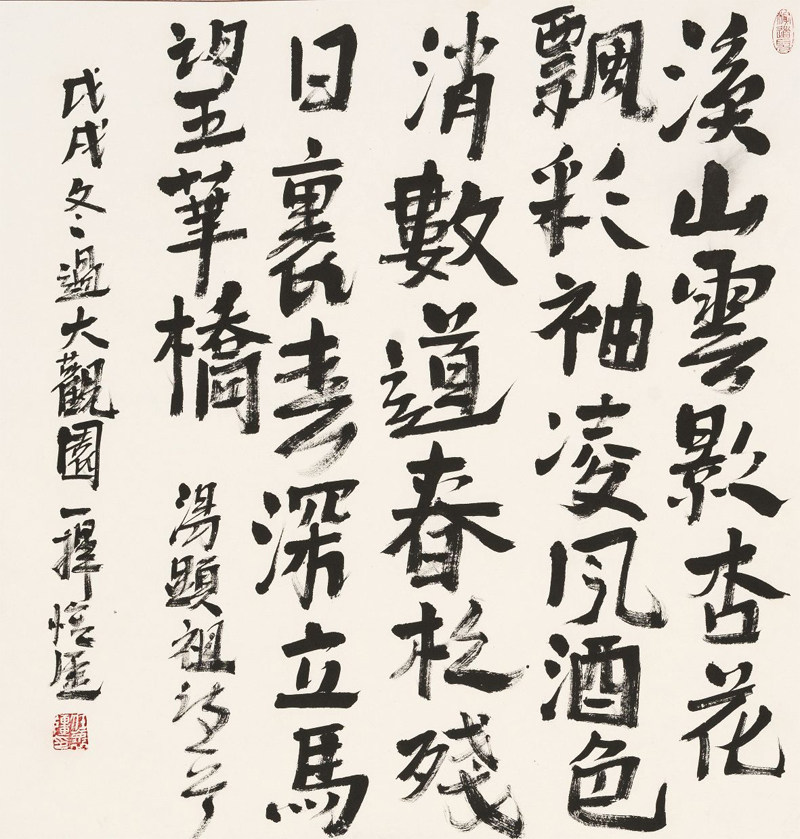 溪山雲影杏花
飄彩袖凌風酒色
消數道春松殘
日裏青深立馬
望玉華橋 湯顯祖詩
戊戌冬過大觀園